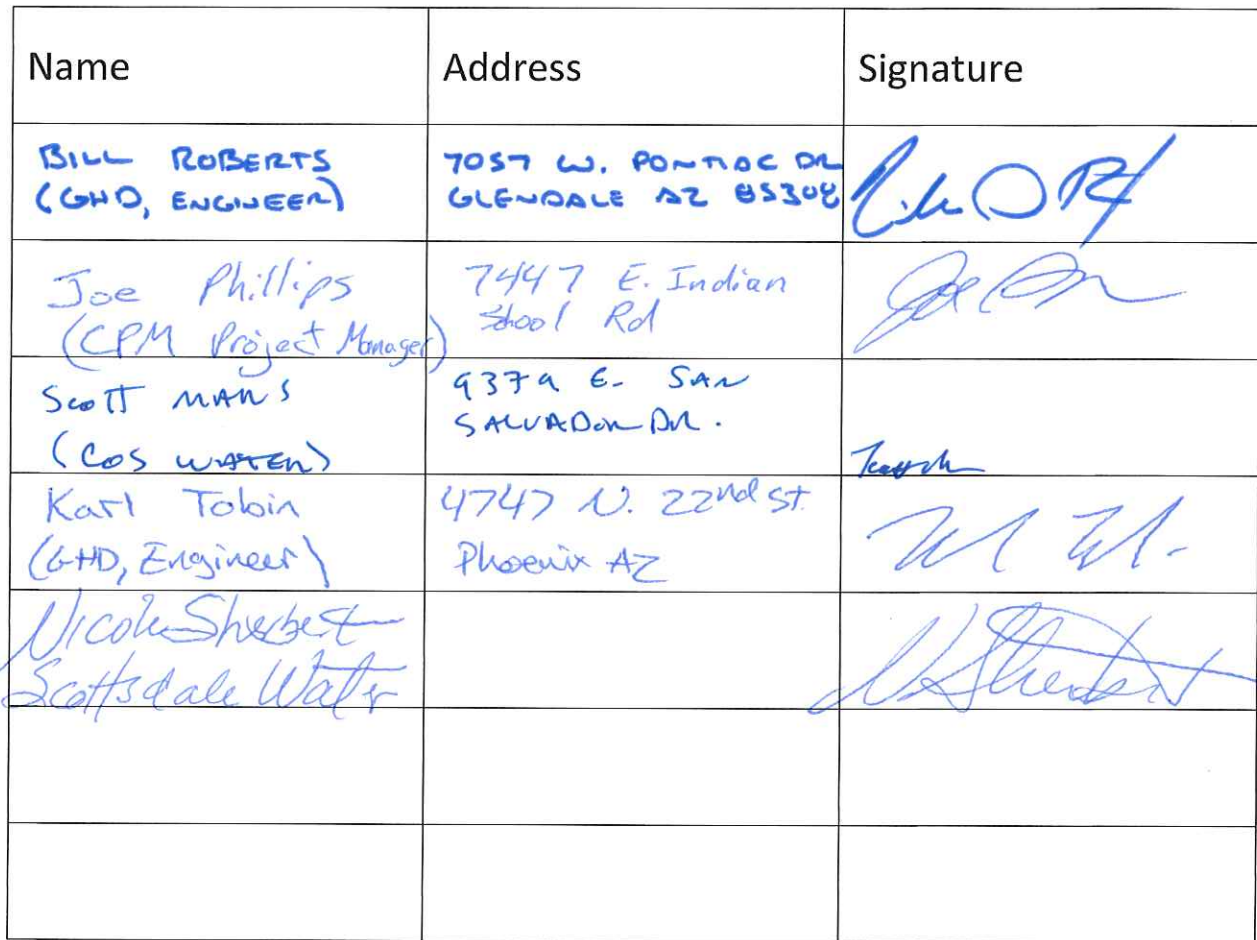 Name Address Signature
BILL ROBERTS
(GHD, ENGINEER)
7057 W. PONTIAC DR
GLENDALE AZ 85308
Joe Phillips
(CPM Project Manager)
7447 E. Indian
School Rd
Scott MARS
(COS WATER)
9379 E- SAN
SALVADOR DR.
Karl Tobin
(GHD, Engineer)
4747 N. 22nd St.
Phoenix AZ
Nicole Sherbert
Scottsdale Water